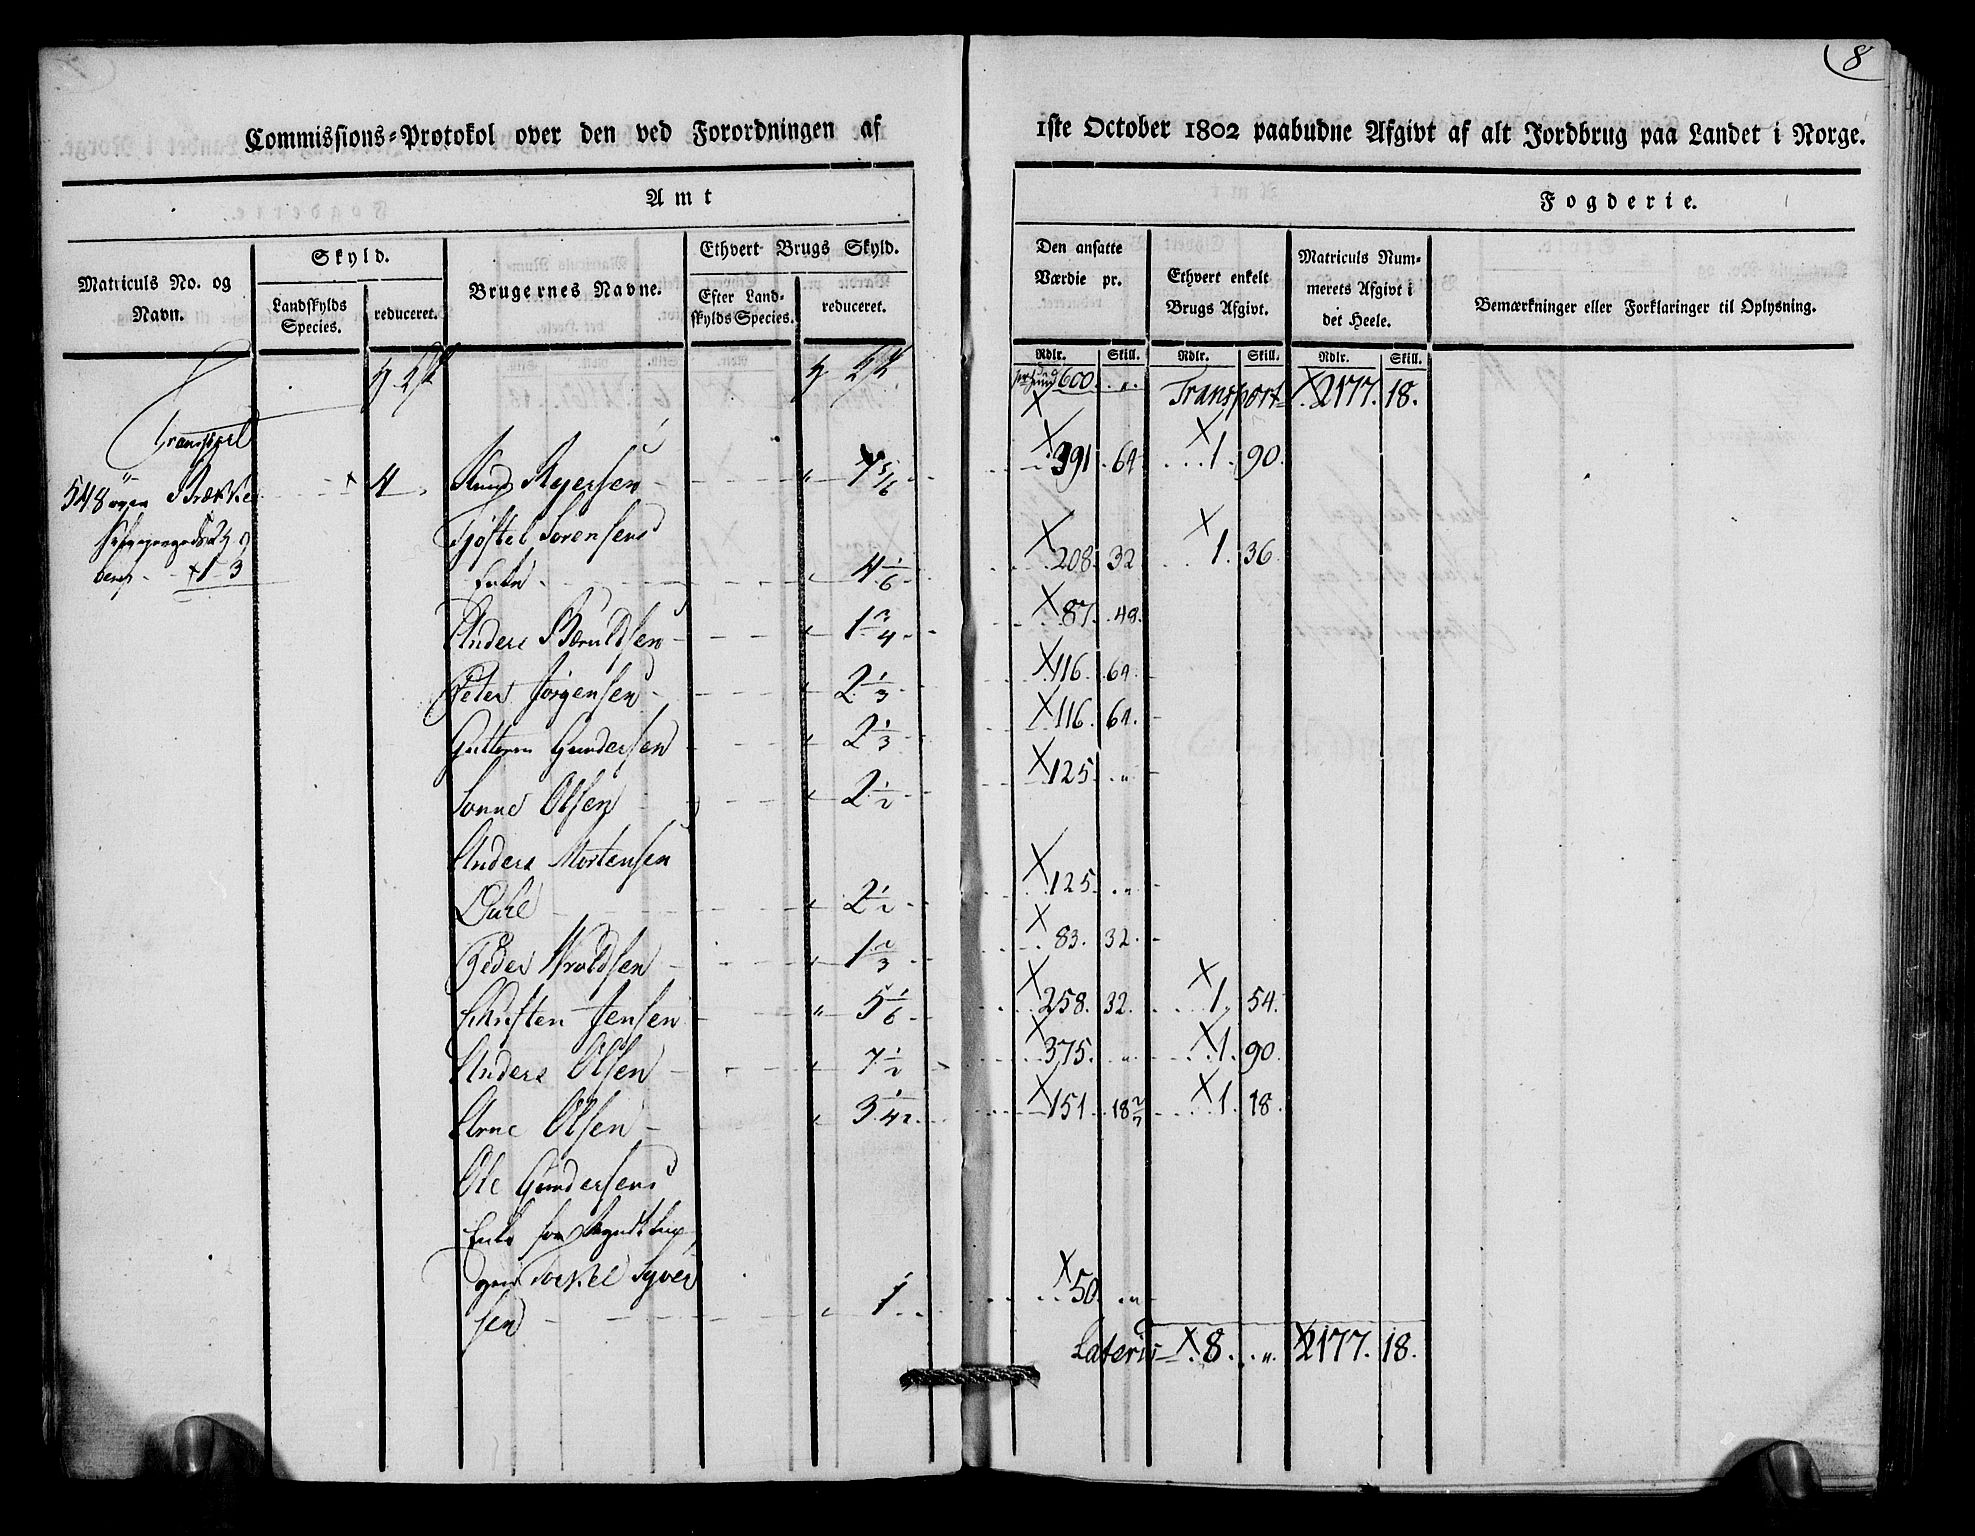 8
Commissions-Protokol over den ved Forordningen af
1ste October 1802 paabudne Afgivt af alt Jordbrug paa Landet i Norge.
Amt
Fogderie.
Matriculs No. og Navn.
Skyld.
Landskylds Species.
reduceret.
Brugernes Navne.
Ethvert Brugs Skyld.
Efter Landskylds Species.
reduceret.
Den ansatte Værdie pr.
Ethvert enkelt Brugs Afgivt.
Matriculs Nummerets Afgivt i det Heele.
Bemærkninger eller Forklaringer til Oplysning.
Rdlr. Skill. Rdlr. Skill. Rdlr. Skill.
600. „. Transport X 2177. 18.
Transport
548 Brække 4 Knud Reyersen „ 7 5/6 X 391 64 X 1. 90.
Tjøstel Sørensens
Enke „ 4 1/6 X 208. 32 X 1. 36.
X 1 3
Anders Bæruldsen „ 1 3/4 X 87. 48.
Peter Jørgensen „ 2 1/3 X 116. 64.
Guttorm Gundersen „ 2 1/3 X 116. 64.
Sonne Olsen „ 2 1/2 X 125. „
Anders Mortensen
Dahl „ 2 1/2 X 125. „
Peder Wroldsen „ 1 2/3 X 83. 32.
Christen Jensen „ 5 1/6 X 258. 32. X 1. 54.
Anders Olsen „ 7 1/2 X 375. „ X 1. 90.
Arne Olsen „ 3 1/42 X 151. 18 2/7 X 1. 18.
Ole Gundersens
Enke
Torkel Syver
sen „ 1 X 50. „
Lateris X 8. „ X 2177. 18.